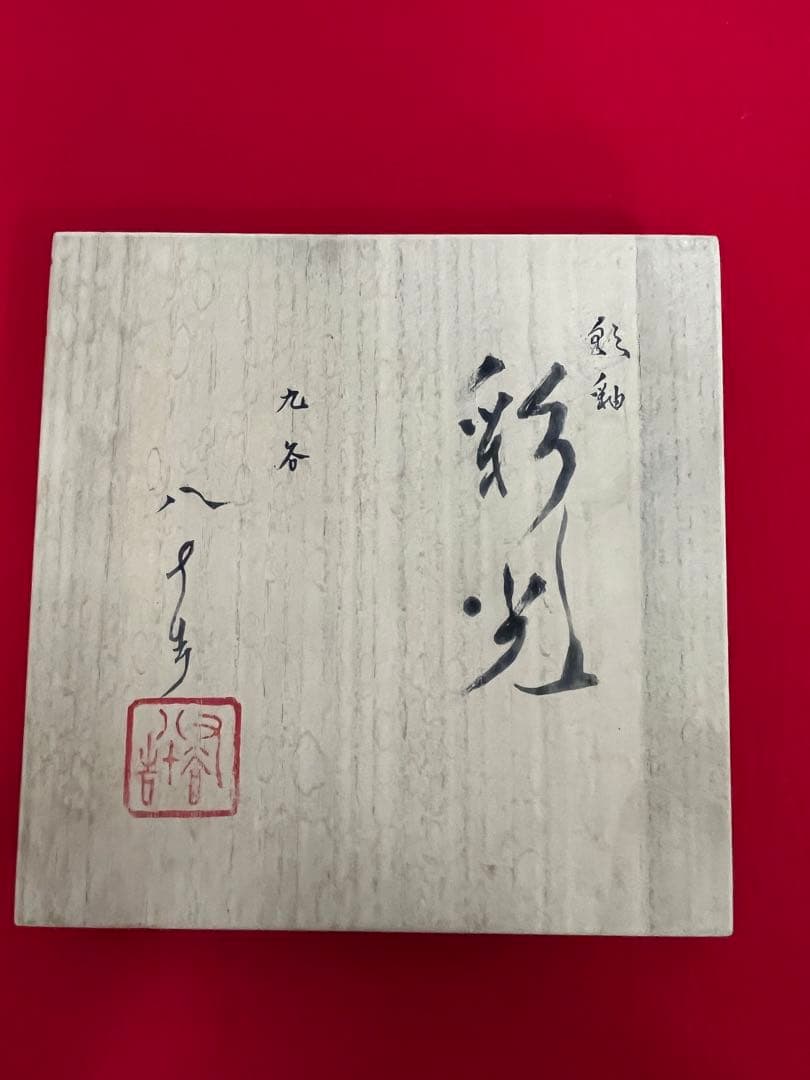 彩釉
彩
九谷
八十吉
九谷八十吉